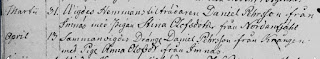 Martii 31. Wigdes Hemmansbrukaren Daniel Pehrsson från
Imnäs med Pigan Anna Olofsdotter från Nordansjöhl
April 13. Sammanvigdes Dränge Daniel Pehrsson från
med Pige Anna Olofsd. från Imnäs